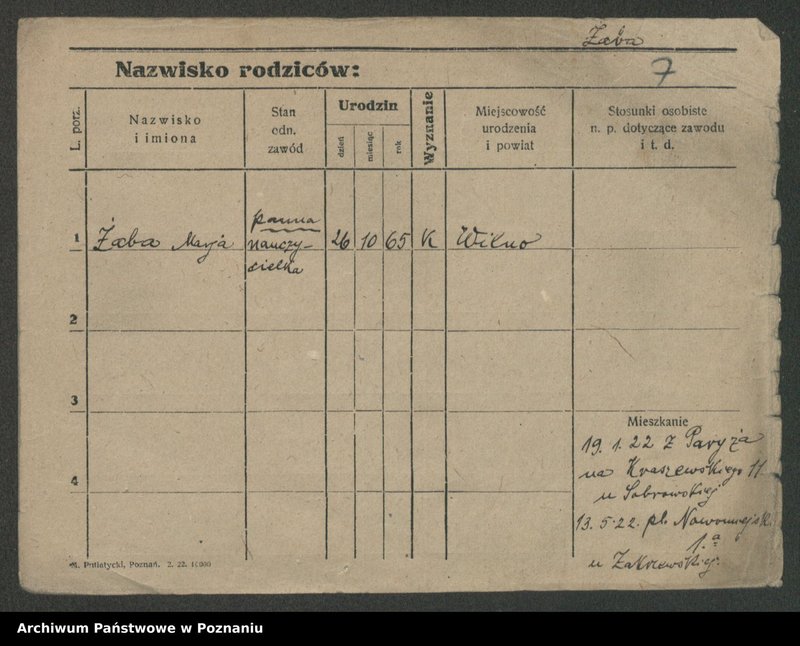 Żaba
7
Nazwisko rodziców:
L. porz.
Nazwisko
i imiona
Stan
odn.
zawód
Urodzin
dzień
miesiąc
rok
Wyznanie
Miejscowość
urodzenia
i powiat
Stosunki osobiste
n. p. dotyczące zawodu
i t. d.
1 Żaba Marja
panna
nauczy-
cielka
26 10 65 K Wilno
2
3
4
Mieszkanie
19. 1. 22 z Paryża
na Kraszewskiego 11
u Sobrowskiej
13. 5. 22. pl. Nowomiejsk.
1.a
u Zakrzewskiej.
M. Putiatycki, Poznań. 2. 22. 10000
Archiwum Państwowe w Poznaniu